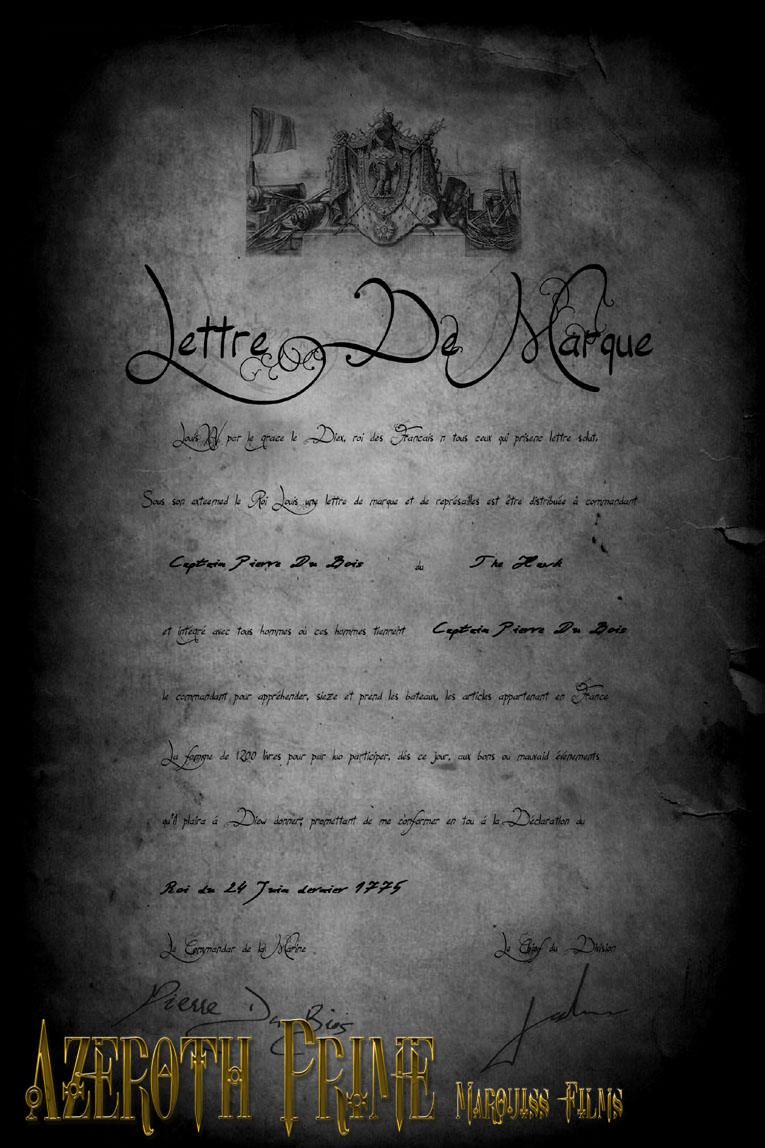 Lettre De Marque
Louis XV, par le grace le Diex, roi des Francais n tous ceux qui prisenc lettre salut,
Sous son exteemed le Roi Louis une lettre de marque et de représailles est être distribuée à commandant
Captain Pierre Du Bois du The Hawk
et intégré avec tous hommes où ces hommes tiennent Captain Pierre Du Bois
le commandant pour appréhender, sieze et prend les bateaux, les articles appartenant en France
La fomme de 1200 livres pour par luo participer, dés ce jour, aux bons ou mauvaid événements
qu'il plaira á Diew donner; promettant de me conformer en tou á la Déclaration du
Roi du 24 Juin dernier 1775
Le Commandar de la Marine Le Chief du Division
Pierre Du Bios
AZEROTH PRIME MARQUISS FILMS